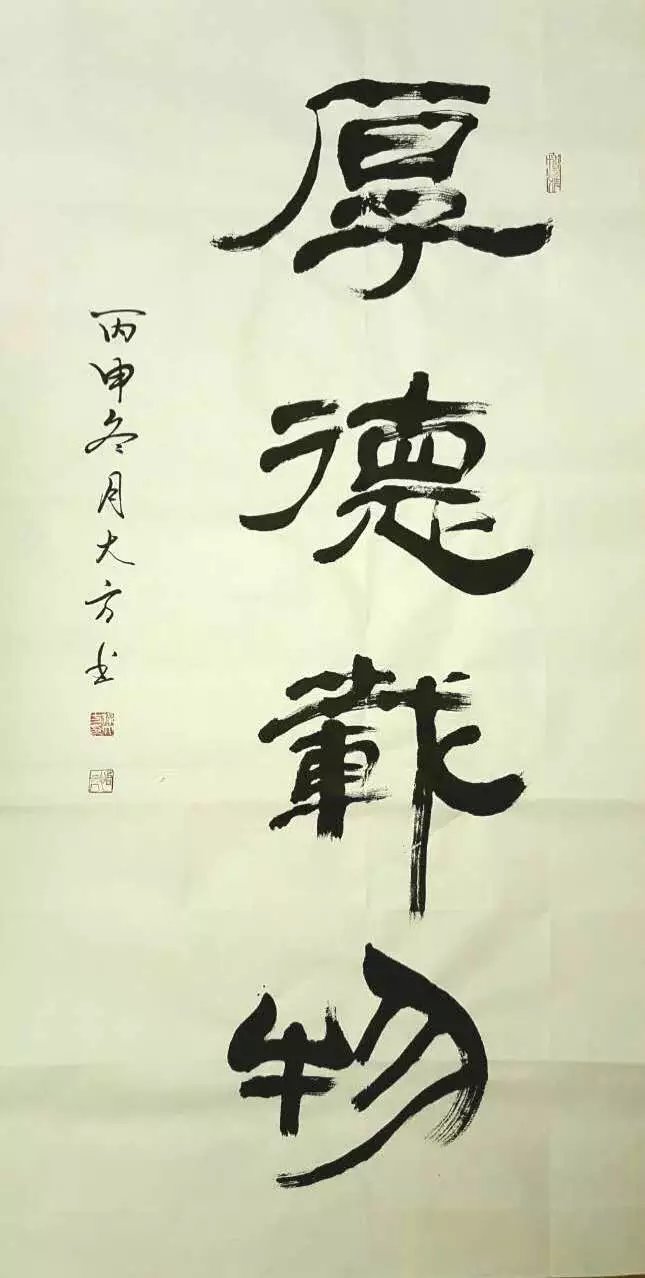 厚德載物
丙申冬月大方书